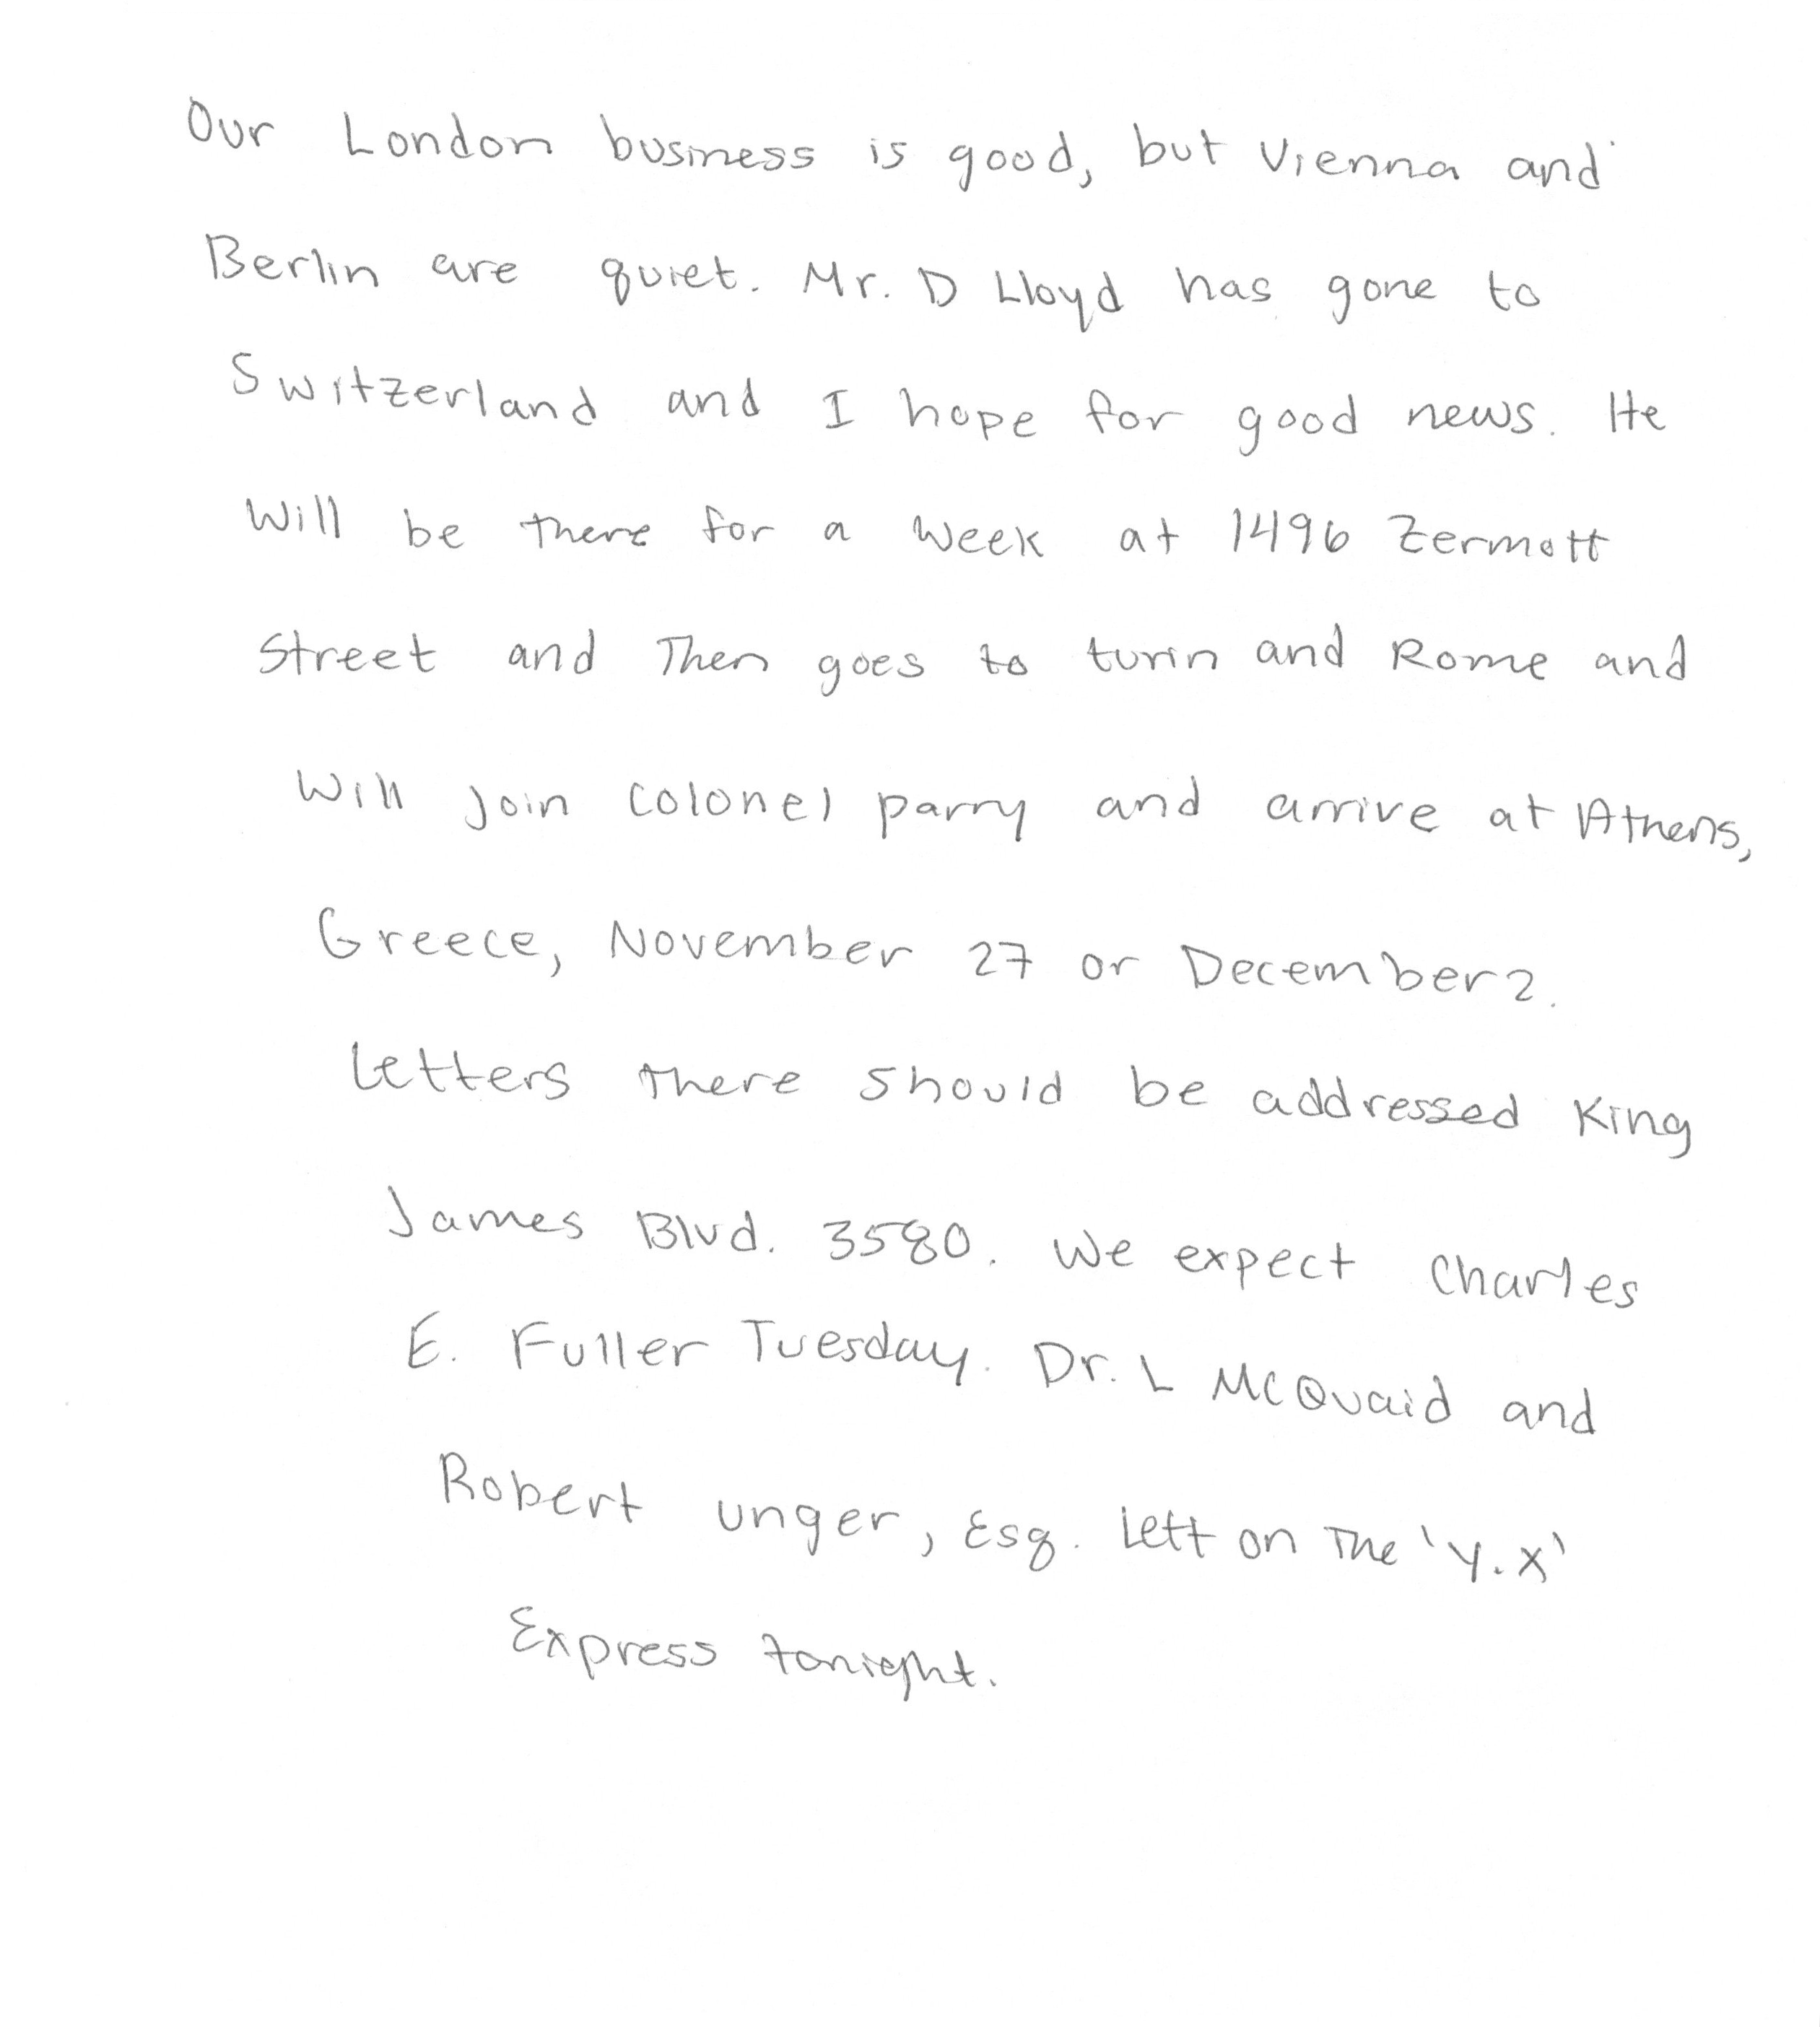 Our London business is good, but Vienna and
Berlin are quiet. Mr. D Lloyd has gone to
Switzerland and I hope for good news. He
will be there for a week at 1496 Zermott
Street and Then goes to turin and Rome and
will join colonel parry and arrive at Athens,
Greece, November 27 or December 2.
Letters there should be addressed King
James Blvd. 3580. We expect Charles
E. Fuller Tuesday. Dr. L McQuaid and
Robert unger, Esq. Left on The 'Y.X'
Express tonight.